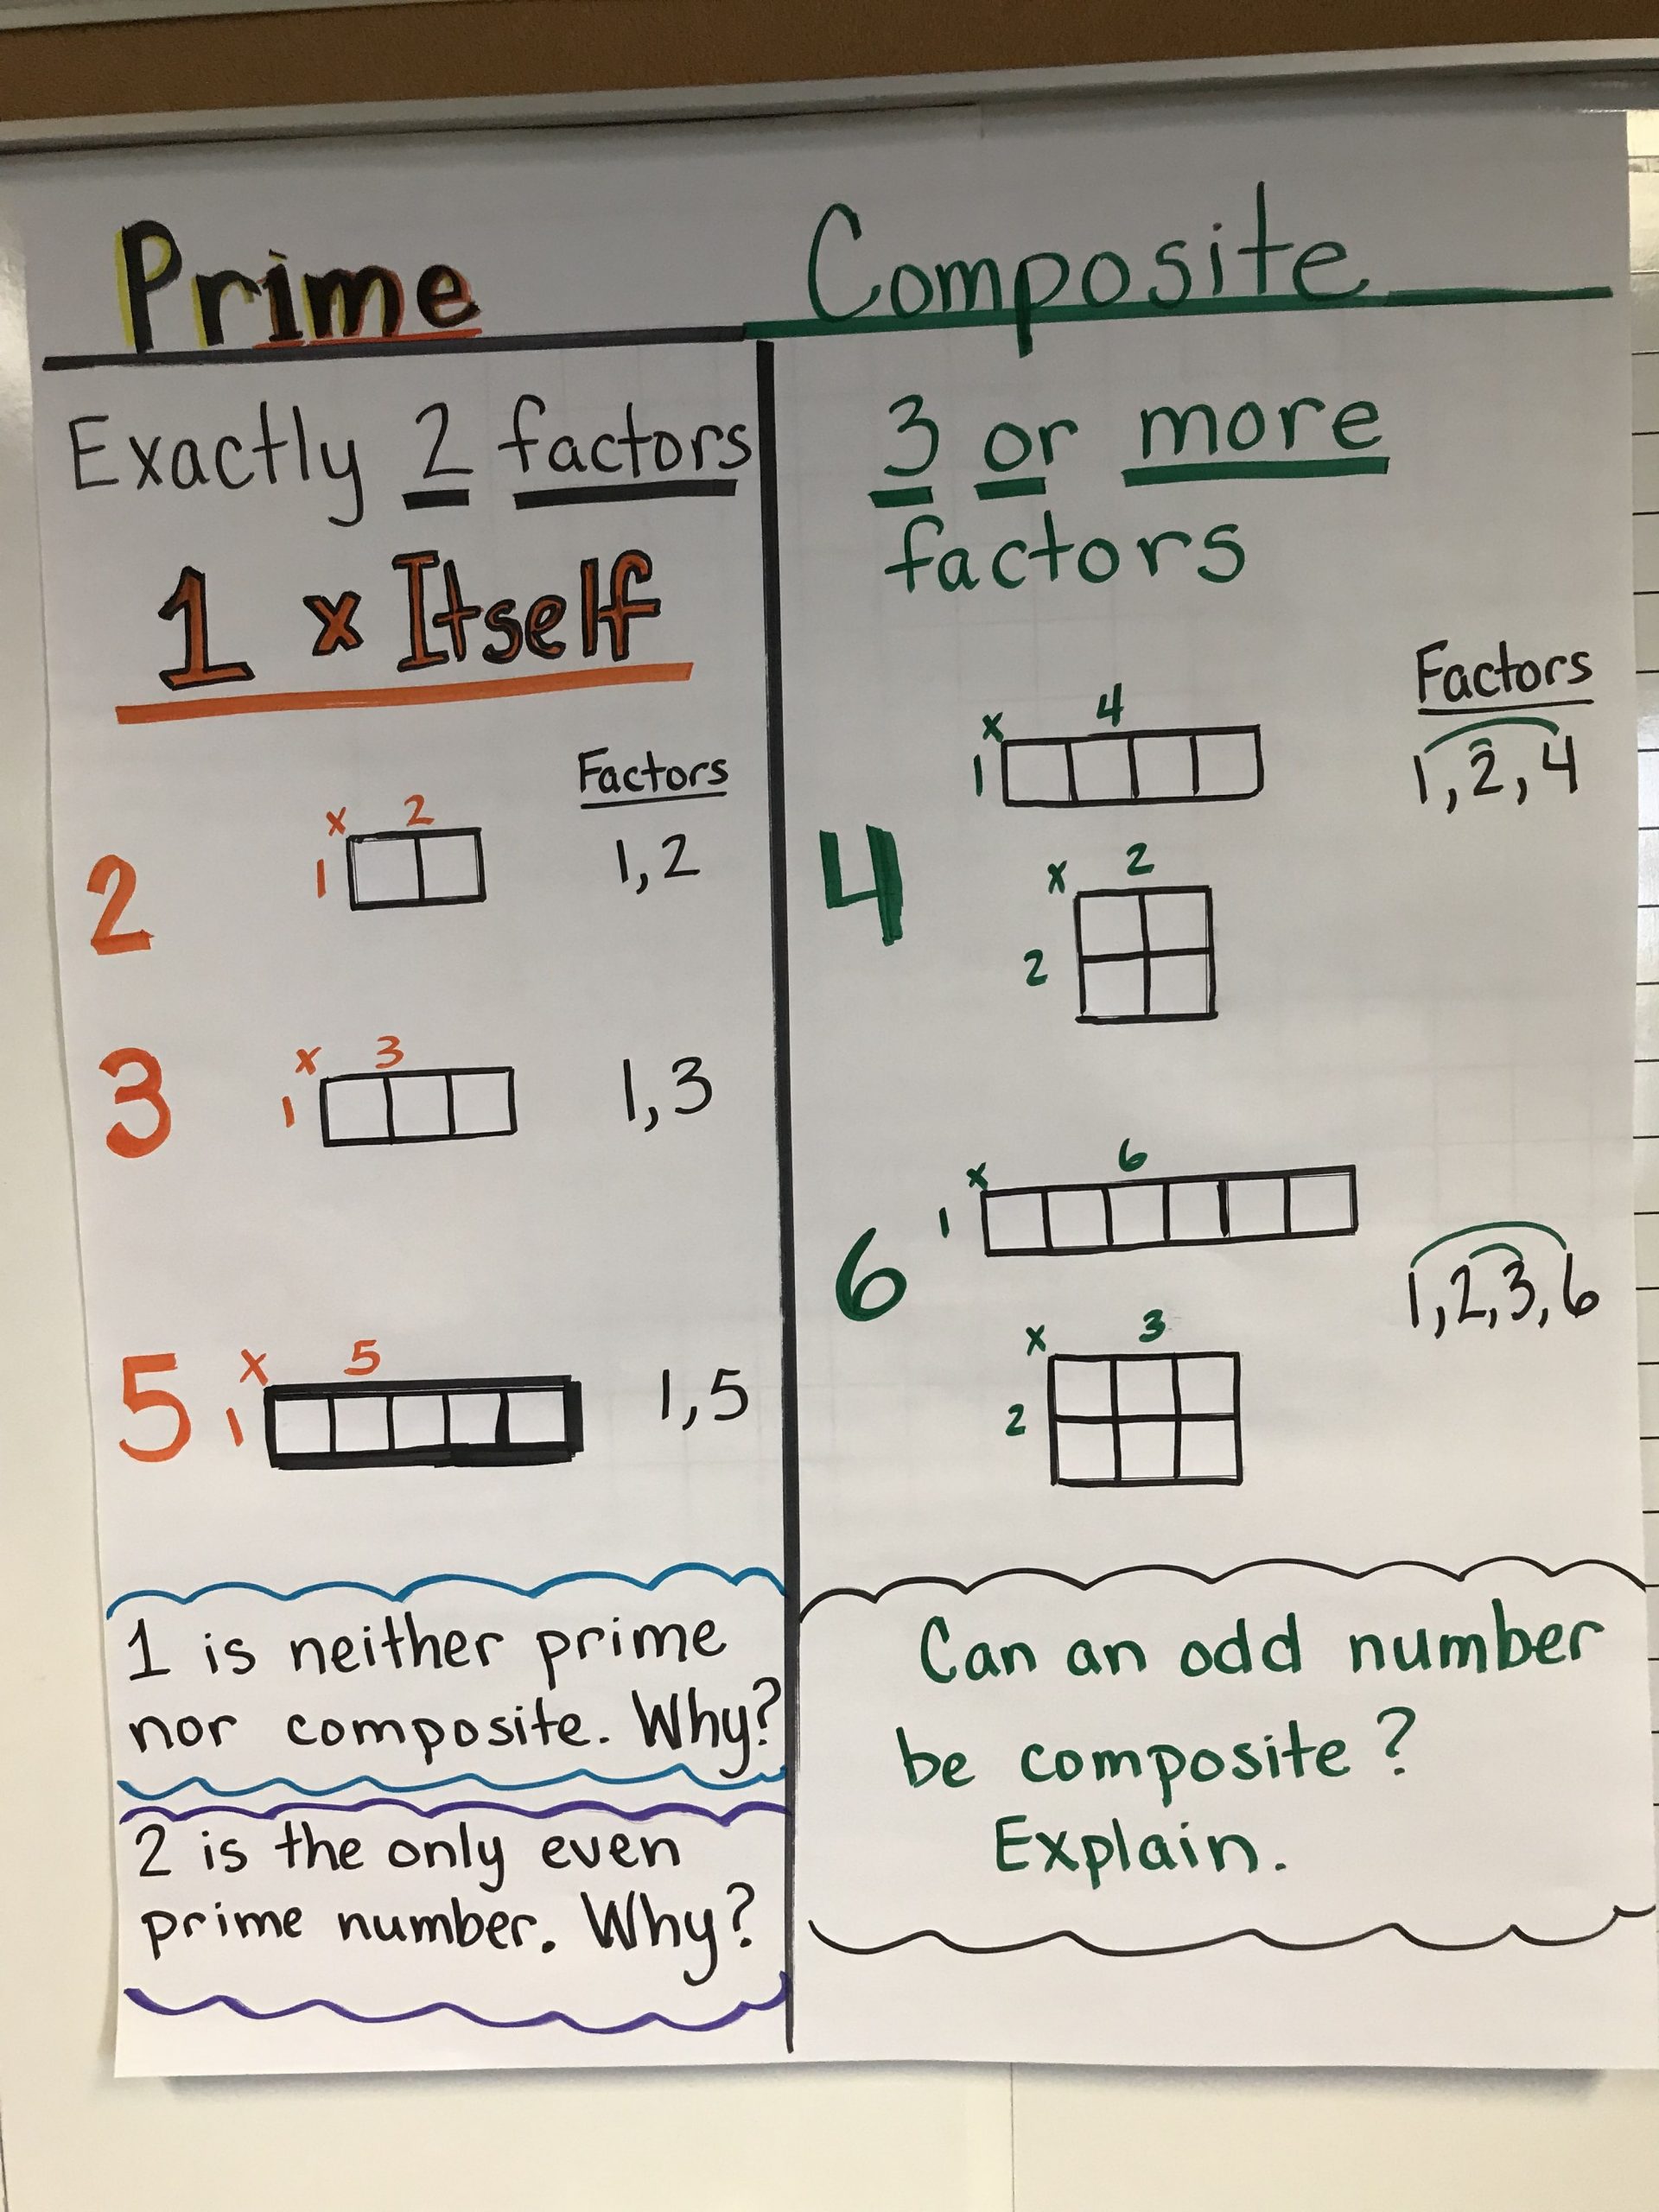 Prime
Exactly 2 factors
1 x Itself
Factors
2
x 2
1
1,2
3
x 3
1
1,3
5
x 5
1
1,5
1 is neither prime
nor composite. Why?
2 is the only even
prime number. Why?
Composite
3 or more
factors
Factors
4
x 4
1
1,2,4
x 2
2
6
x 6
1
1,2,3,6
x 3
2
Can an odd number
be composite?
Explain.